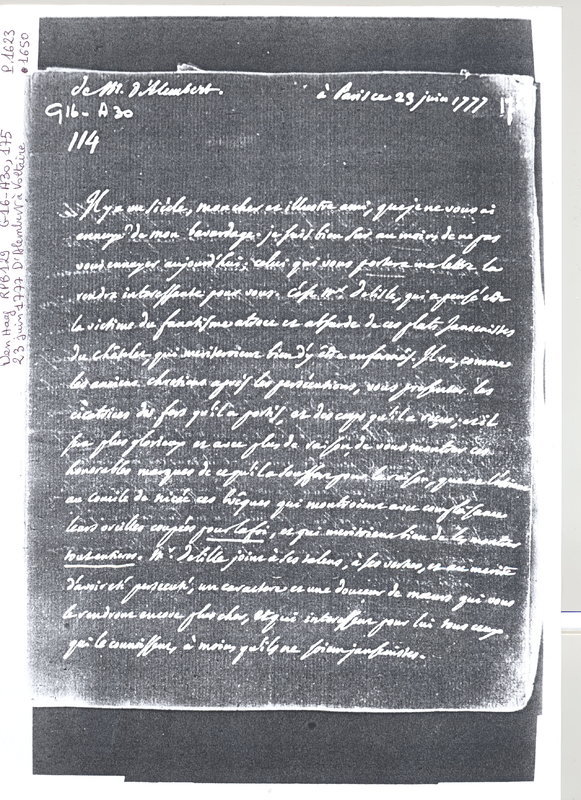 P.1623
• 1650
Den Haag RPB129 G16-A30, 175
23 juin 1777 D'Alembert à Voltaire
de Mr. d'Alembert.
à Paris ce 23 juin 1777
G16-A30
114
Il y a un siècle, mon cher et illustre ami, que je ne vous ai
ennuyé de mon bavardage. je suis bien sûr au moins de ne pas
vous ennuyer aujourd'hui; celui qui vous portera ma lettre la
rendra interessante pour vous. C'est Mr. delille, qui a pensé etre
la victime du fanatisme atroce et absurde de ces plats jansenistes
du châtelet, qui meriteroient bien d'y être enfermés. Il va, comme
les anciens chretiens après les persécutions, vous presenter les
cicatrices des fers qu'il a portés, et des coups qu'il a reçus; et il
sera plus glorieux et avec plus de raison, de vous montrer ces
honorables marques de ce qu'il a souffert pour la raison, que
au concile de nicée ces Evêques qui montroient avec complaisance
leurs oreilles coupées pour la foi, et qui meritoient bien de les montrer
tout entieres. Mr. delille joint à ses talens, à ses vertus, et au merite
d'avoir eté persecuté, un caractère et une douceur de mœurs qui vous
le rendront encore plus cher, et qui interessent pour lui tous ceux
qui le connoissent, à moins qu'ils ne soient jansenistes.